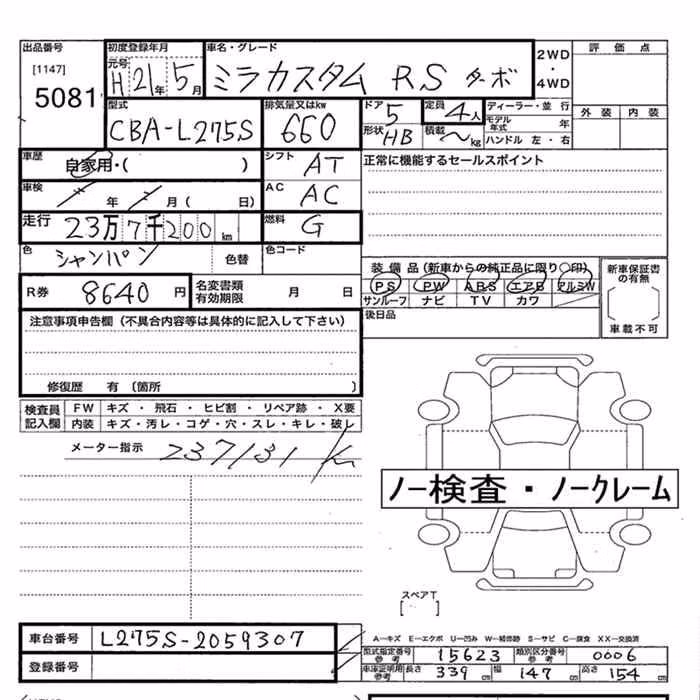 出品番号 初度登録年月 車名・グレード 2WD・4WD 評価点
[1147] 元号
5081 H21年5月 ミラカスタム RS ターボ
型式 排気量又はkw ドア 定員 ディーラー・並行 外装 内装
CBA-L275S 660 5 4人 モデル年式 年
形状 HB 積載 〜kg ハンドル 左・右
車歴 自家用・( ) シフト AT 正常に機能するセールスポイント
車検 年 月( 日) AC AC
走行 23万7千200km 燃料 G
色 シャンパン 色替 色コード
装備品(新車からの純正品に限り○印) 新車保証書の有無
R券 8640円 名変書類有効期限 月 日 PS PW ABS エアB アルミW
サンルーフ ナビ TV カワ
注意事項申告欄(不具合内容等は具体的に記入して下さい) 後日品 車載不可
修復歴 有(箇所 )
検査員記入欄 FW キズ・飛石・ヒビ割・リペア跡・X要
内装 キズ・汚レ・コゲ・穴・スレ・キレ・破レ
メーター指示 237131km
ノー検査・ノークレーム
スペアT
[ ]
車台番号 L275S-2059307 A—キズ E—エクボ U—凹み W—補修跡 S—サビ C—腐食 XX—交換済
型式指定番号参考 15623 類別区分番号参考 0006
登録番号 車庫証明用参考 長さ 339cm 幅 147cm 高さ 154cm